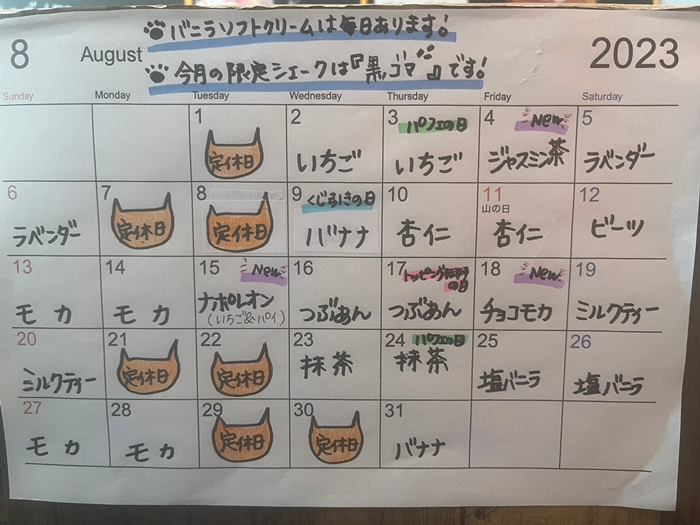 バニラソフトクリームは毎日あります!
8 August 今月の限定シェークは『黒ゴマ』です! 2023
Sunday Monday Tuesday Wednesday Thursday Friday Saturday
1 2 3 パフェの日 4 New 5
定休日 いちご いちご ジャスミン茶 ラベンダー
6 7 8 9 くじ引きの日 10 11 山の日 12
ラベンダー 定休日 定休日 バナナ 杏仁 杏仁 ビーツ
13 14 15 New 16 17 トッピング無料の日 18 New 19
モカ モカ ナポレオン つぶあん つぶあん チョコモカ ミルクティー
(いちご&パイ)
20 21 22 23 24 パフェの日 25 26
ミルクティー 定休日 定休日 抹茶 抹茶 塩バニラ 塩バニラ
27 28 29 30 31
モカ モカ 定休日 定休日 バナナ